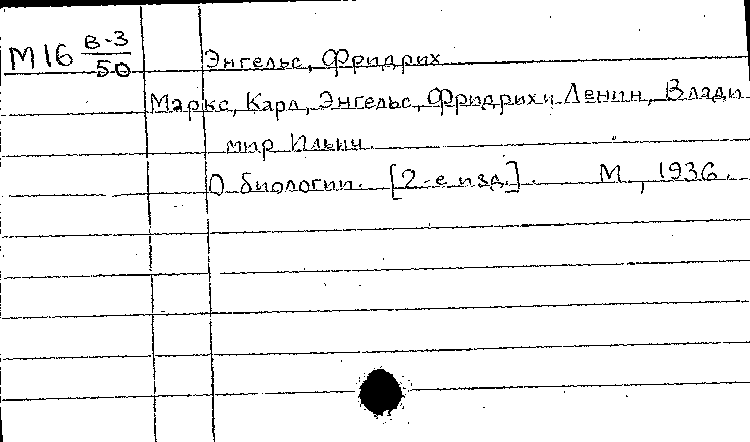 М16 В-3
50
Энгельс, Фридрих
Маркс, Карл, Энгельс, Фридрих и Ленин, Влади
мир Ильич.
О биологии. [2-е изд.]. М., 1936.